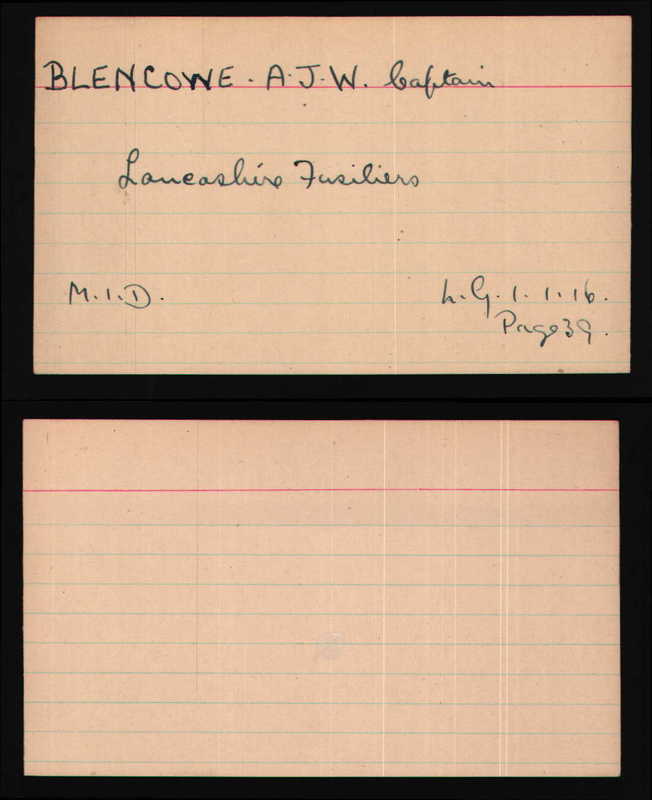 BLENCOWE. A.J.W. Captain
Lancashire Fusiliers
M.I.D.
L.G. 1. 1. 16.
Page 39.